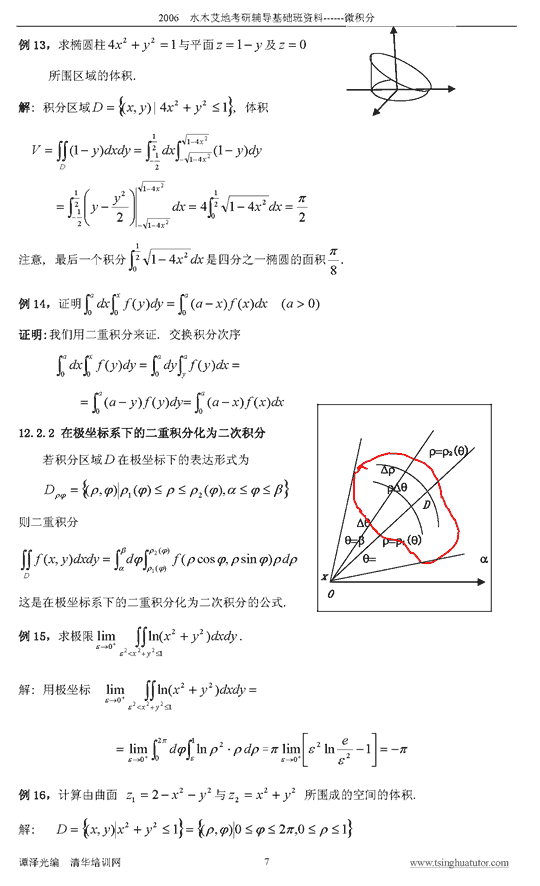 2006 水木艾地考研辅导基础班资料------微积分
例 13，求椭圆柱 4x² + y² = 1 与平面 z = 1 − y 及 z = 0
所围区域的体积.
解: 积分区域 D = {(x, y) | 4x² + y² ≤ 1}, 体积
V = ∬_D (1 − y)dxdy = ∫_{-1/2}^{1/2} dx ∫_{-√(1−4x²)}^{√(1−4x²)} (1 − y)dy
= ∫_{-1/2}^{1/2} (y − y²/2) |_{-√(1−4x²)}^{√(1−4x²)} dx = 4∫_0^{1/2} √(1−4x²) dx = π/2
注意, 最后一个积分 ∫_0^{1/2} √(1−4x²) dx 是四分之一椭圆的面积 π/8.
例 14，证明 ∫_0^a dx ∫_0^x f(y)dy = ∫_0^a (a − x)f(x)dx (a > 0)
证明: 我们用二重积分来证. 交换积分次序
∫_0^a dx ∫_0^x f(y)dy = ∫_0^a dy ∫_y^a f(y)dx =
= ∫_0^a (a − y)f(y)dy = ∫_0^a (a − x)f(x)dx
12.2.2 在极坐标系下的二重积分化为二次积分
若积分区域 D 在极坐标下的表达形式为
D_{ρφ} = {(ρ, φ)|ρ₁(φ) ≤ ρ ≤ ρ₂(φ), α ≤ φ ≤ β}
则二重积分
∬_D f(x, y)dxdy = ∫_α^β dφ ∫_{ρ₁(φ)}^{ρ₂(φ)} f(ρ cos φ, ρ sin φ)ρ dρ
这是在极坐标系下的二重积分化为二次积分的公式.
ρ=ρ₂(θ)
Δρ
ρΔθ
D
Δθ
θ=β ρ=ρ₁(θ)
θ= α
x
O
例 15，求极限 lim_{ε→0⁺} ∬_{ε²<x²+y²≤1} ln(x² + y²)dxdy.
解: 用极坐标 lim_{ε→0⁺} ∬_{ε²<x²+y²≤1} ln(x² + y²)dxdy =
= lim_{ε→0⁺} ∫_0^{2π} dφ ∫_ε^1 ln ρ² · ρ dρ = π lim_{ε→0⁺} [ε² ln e/ε² − 1] = −π
例 16，计算由曲面 z₁ = 2 − x² − y² 与 z₂ = x² + y² 所围成的空间的体积.
解: D = {(x, y)|x² + y² ≤ 1} = {(ρ, φ)|0 ≤ φ ≤ 2π, 0 ≤ ρ ≤ 1}
谭泽光编 清华培训网 7 www.tsinghuatutor.com